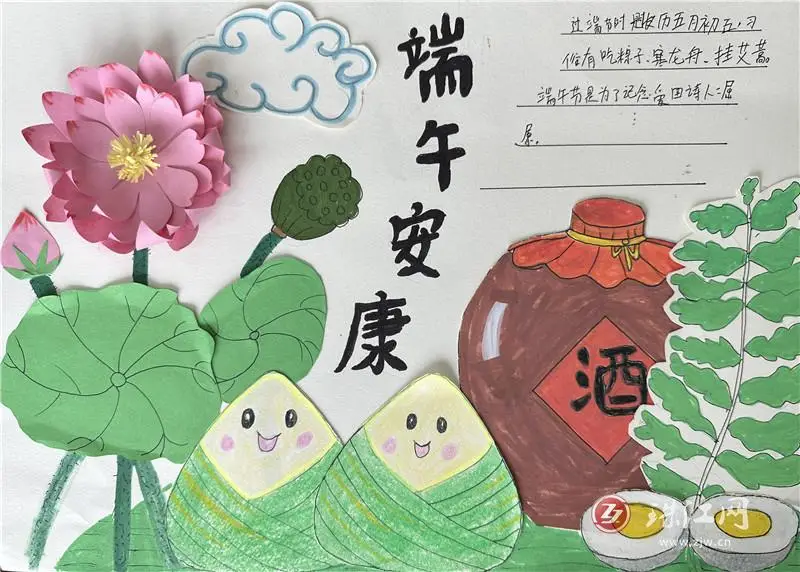 端午安康
过端节时农历五月初五,习
俗有吃粽子、赛龙舟、挂艾蒿。
端午节是为了记念爱国诗人:屈
原。
酒
珠江网
www.zjw.cn